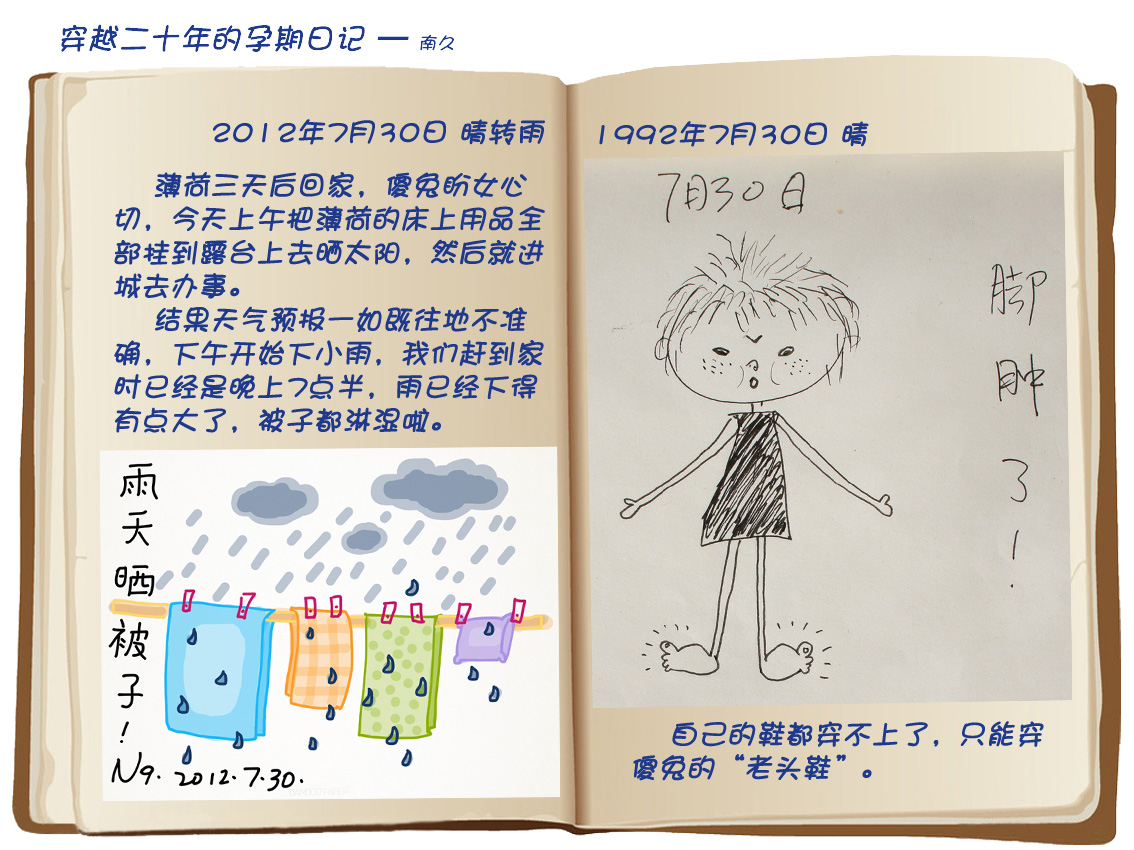 穿越二十年的孕期日记 — 南久
2012年7月30日 晴转雨
薄荷三天后回家，傻兔盼女心
切，今天上午把薄荷的床上用品全
部挂到露台上去晒太阳，然后就进
城去办事。
结果天气预报一如既往地不准
确，下午开始下小雨，我们赶到家
时已经是晚上7点半，雨已经下得
有点大了，被子都淋湿啦。
雨天晒被子！
N9. 2012.7.30.
1992年7月30日 晴
7月30日
脚肿了！
自己的鞋都穿不上了，只能穿
傻兔的“老头鞋”。